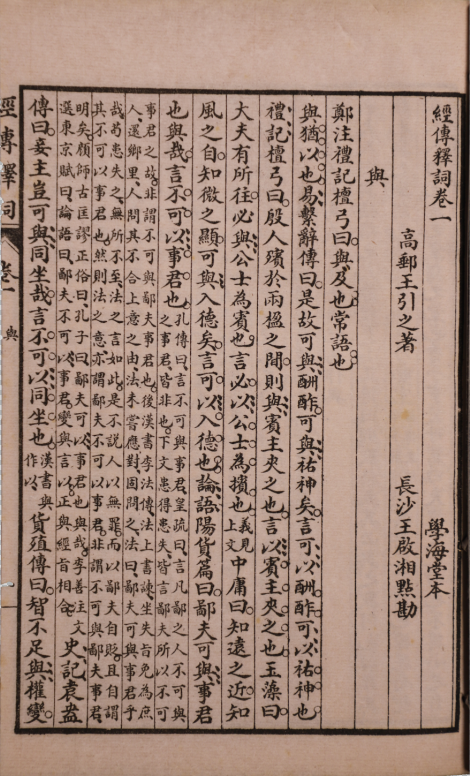 經傳釋詞卷一 學海堂本
高郵王引之著 長沙王啟湘點勘
與
鄭注禮記檀弓曰與及也常語也
與猶以也易繫辭傳曰是故可與酬酢可與祐神矣言可以酬酢可以祐神也
禮記檀弓曰殷人殯於兩楹之間則與賓主夾之也言以賓主夾之也玉藻曰
大夫有所往必與公士為賓也言必以公士為擯也義見上文中庸曰知遠之近知
風之自知微之顯可與入德矣言可以入德也論語陽貨篇曰鄙夫可與事君
也與哉言不可以事君也孔傳曰言不可與事君皇疏曰言凡鄙之人不可與
之事君皆非也下文患得患失皆言鄙夫所以不可
事君之故非謂不可與鄙夫事君也後漢書李法傳法上書諫坐失旨免為庶
人還鄉里人問其不合上意之由法未嘗應對固問之法曰鄙夫可與事君乎
哉苟患失之無所不至法之言如此是不說人以無罪而以鄙夫自貶且自謂
其不可以事君也然則法之意亦謂鄙夫不可以事君非謂不可與鄙夫事君
明矣顏師古匡謬正俗曰孔子曰鄙夫可以事君也與哉李善注文
選東京賦曰論語曰鄙夫不可以事君變與言以正與經旨相合史記袁盎
傳曰妾主豈可與同坐哉言不可以同坐也漢書與作以貨殖傳曰智不足與權變
經傳釋詞 卷一 與